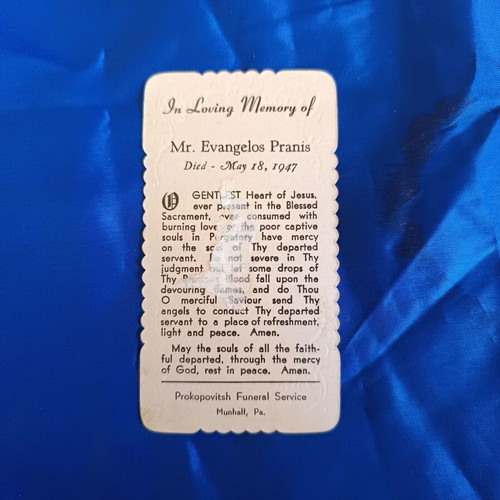 In Loving Memory of
Mr. Evangelos Pranis
Died - May 18, 1947
O GENTLEST Heart of Jesus,
ever present in the Blessed
Sacrament, ever consumed with
burning love for the poor captive
souls in Purgatory have mercy
on the soul of Thy departed
servant. Be not severe in Thy
judgment but let some drops of
Thy Precious Blood fall upon the
devouring flames, and do Thou
O merciful Saviour send Thy
angels to conduct Thy departed
servant to a place of refreshment,
light and peace. Amen.
May the souls of all the faith-
ful departed, through the mercy
of God, rest in peace. Amen.
Prokopovitsh Funeral Service
Munhall, Pa.